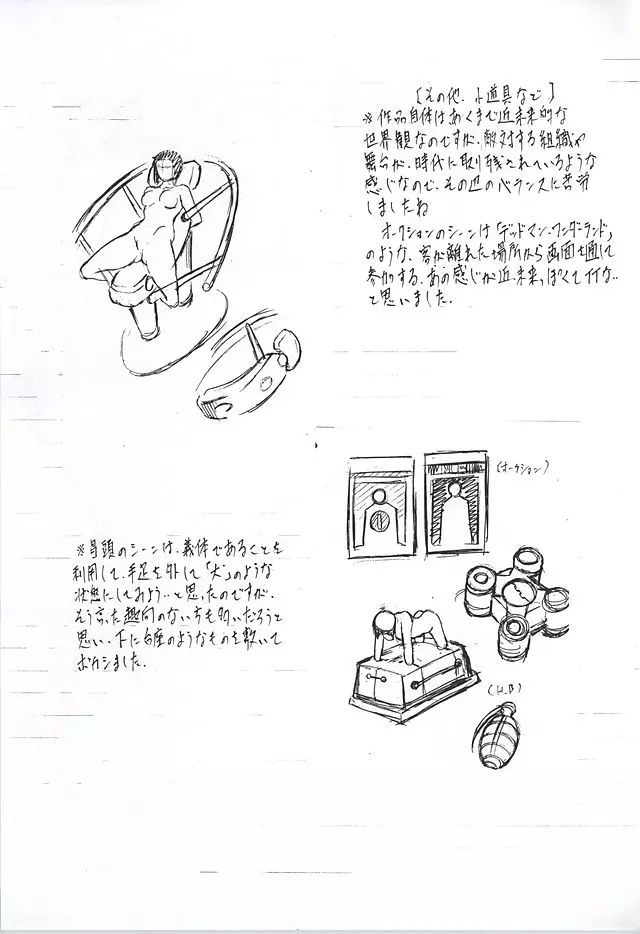 [その他、小道具など]
※作品自体はあくまで近未来的な
世界観なのですが、敵対する組織や
舞台が、時代に取り残されているような
感じなので、その辺のバランスに苦労
しましたね
オークションのシーンは「デッドマン・ワンダーランド」
のような、客が離れた場所から画面を通して
参加する、あの感じが近未来っぽくていいな
と思いました.
(オークション)
※冒頭のシーンは、義体であることを
利用して、手足を外して「犬」のような
状態にしてみよう…と思ったのですが、
そう言った趣向のない方も多いだろうと
思い、下に台座のようなものを敷いて
ボカシました.
(H.B)